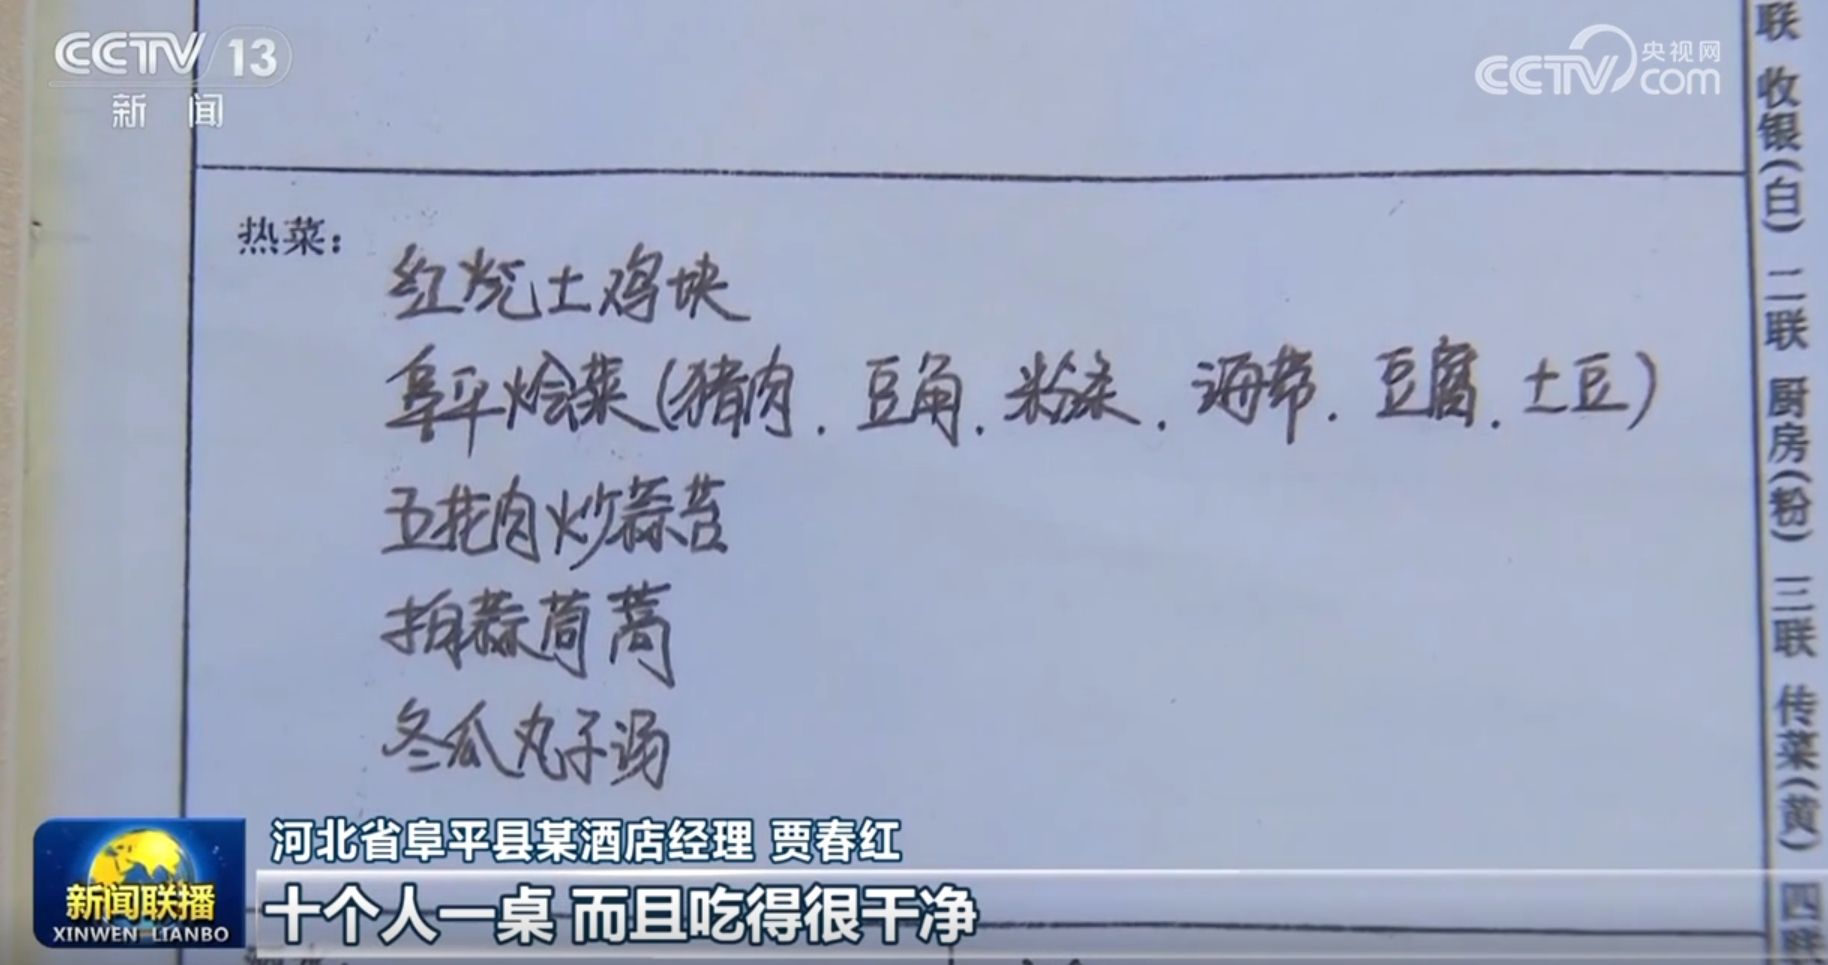 CCTV 13
新闻
央视网
CCTV com
热菜：
红烧土鸡块
阜平烩菜(猪肉.豆角.粉条.海带.豆腐.土豆)
五花肉炒蒜苔
拍蒜茼蒿
冬瓜丸子汤
联 收银(白) 二联 厨房(粉) 三联 传菜(黄) 四联
河北省阜平县某酒店经理 贾春红
新闻联播
XINWEN LIANBO
十个人一桌 而且吃得很干净